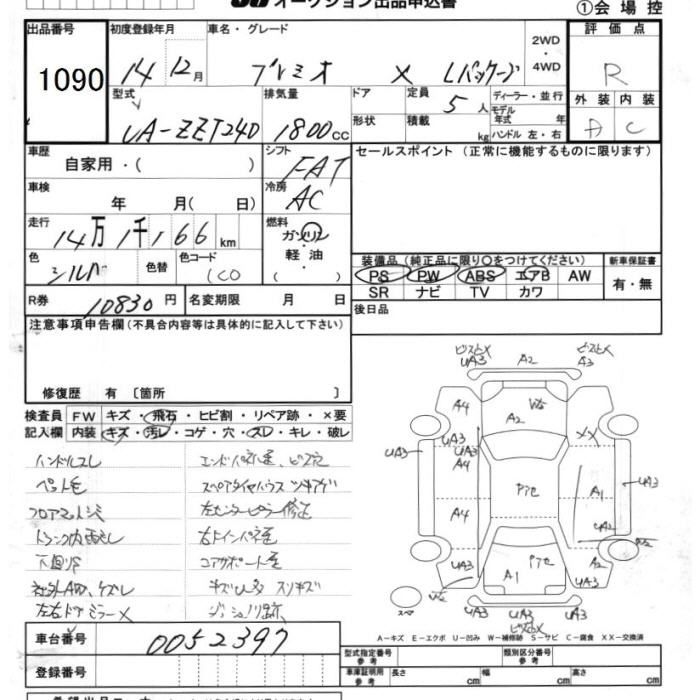 オークション出品申込書
①会場控
出品番号 初度登録年月 車名・グレード 2WD・4WD 評価点
1090 14 12月 プレミオ X Lパッケージ R
型式 排気量 ドア 定員 5人 ディーラー・並行 外装 内装
UA-ZZT240 1800cc 形状 積載 kg モデル年式 年式 ハンドル 左・右 A C
車歴 自家用・( ) シフト FAT セールスポイント (正常に機能するものに限ります)
車検 年 月( 日) 冷房 AC
走行 14万1千166km 燃料 ガソリン・軽油
色 シルバー 色替 色コード 1C0
装備品(純正品に限り○をつけてください) 新車保証書
PS PW ABS エアB AW 有・無
SR ナビ TV カワ
R券 10830円 名変期限 月 日 後日品
注意事項申告欄(不具合内容等は具体的に記入して下さい)
修復歴 有〔箇所 〕
検査員記入欄 FW キズ・飛石・ヒビ割・リペア跡・×要
内装 キズ・汚レ・コゲ・穴・スレ・キレ・破レ
ハンドルスレ
ペット毛
フロアマットシミ
トランク内雨もし
下廻りS
社外AW、ケズレ
左右ドアミラーX
スペアタイヤハウス ツキアゲ
左センターピラー修正
コアサポート歪
キズU多 スリキズ
A2 A3 UA3 A4 A2 W2 XX UA3 A4 A1 A4 UA2 UA3 A1 A2 UA3
スペア
A-キズ E-エクボ U-凹み W-補修跡 S-サビ C-腐食 XX-交換済
車台番号 0052397
登録番号
型式指定番号 参考 類別区分番号 参考
車庫証明用 参考 長さ cm 幅 cm 高さ cm